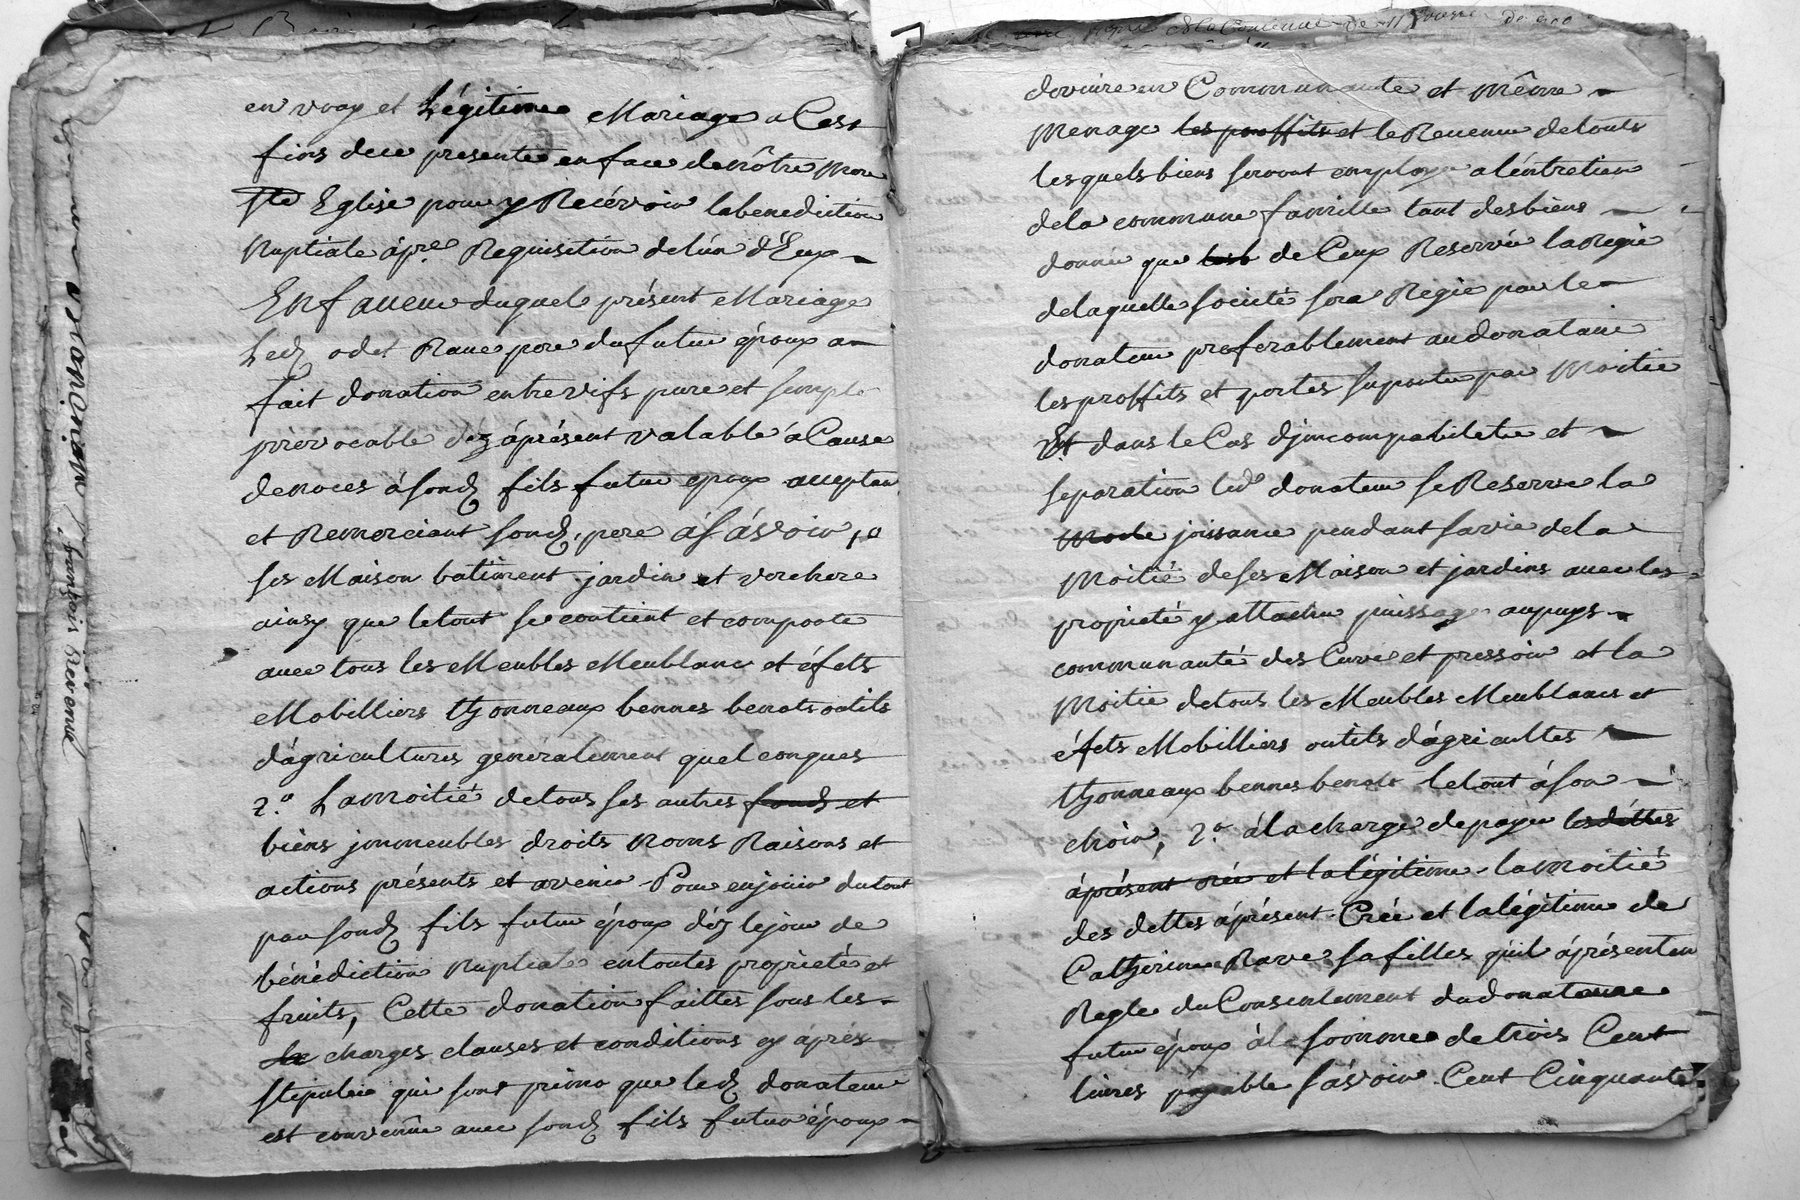 en vray et Légitime Mariage a Cest
fins de ce presente en face de nôtre Mere
Ste Eglise pour y Recévoir la benediction
Nuptiale ápre Requisition de l'ún d'Eux
En faveur duquel présent Mariage
Led odet Rave pere du futur époux a
fait donation entre vifs pure et simple
jrrévocable déz áprésent valable á Cause
de noces á sond fils futur epoux acceptan
et Remerciant sond. pere á Sávoir, 1o
ses Maison batiment jardin et verchere
ainsy que le tout se contient et comporte
avec tous les Meubles Meublant et éfets
Mobilliers thonneaux bennes benots outils
d'ágricultures generalement quelconques
2.o La moitié de tous ses autres fonds et
biens jmmeubles droits Noms Raisons et
actions présents et avenir Pour en joüir du tout
par sond fils futur époux déz le jour de
bénédiction Nuptiale en toutes proprieté et
fruits, Cette donation faittes sous les
charges clauses et conditions cy áprés
stipulée qui sont primo que led donateur
est convenüe avec sond fils futur époux
de vivre en Communauté et même
Menage les proffits et le Revenu de touts
les quels biens seront employe a l'éntretien
de la commune famille tant des biens
donnée que de Ceux Reservée la Regie
de laquelle société sera Regie par le
donateur preferablement au donataire
les proffits et pertes suporte par Moitie
Et dans le Cas d'jmcompabiletée et
separation led donateur se Reserve la
joissance pendant sa vie de la
Moitié de ses Maison et jardins avec les
proprieté y attachée puissage au puys
communauté des Cuve et pressoir et la
Moitie de tous les Meubles Meublants et
éfets Mobilliers outils d'ágricultes
thonneaux bennes benots le tout á son
choix, 2.o á la charge de payer les déttes
áprésent créé et la légitime la moitié
des dettes áprésent Créé et la légitime de
Catherine Rave sa filles qu'il áprésent en
Regle du Consentement du donataire
futur époux á la somme de trois Cent
livres payable Sávoir Cent Cinquante
François